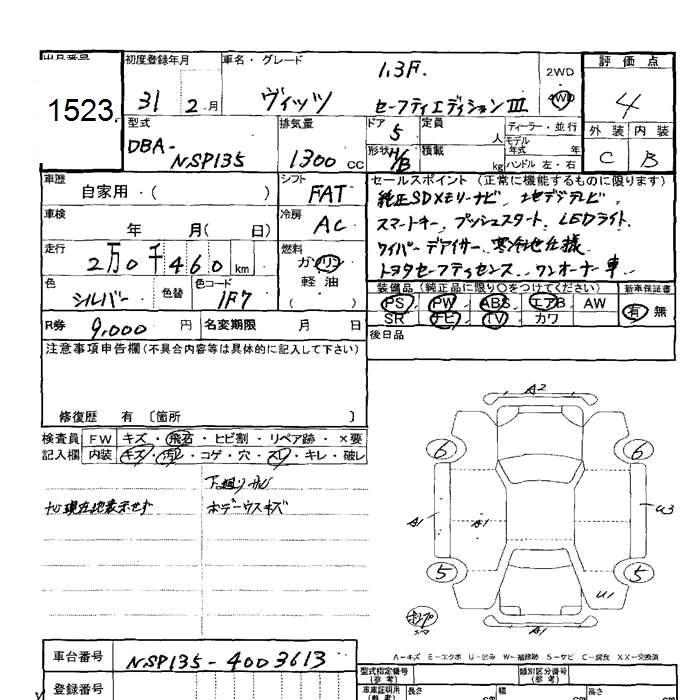 出品番号
1523
初度登録年月
31年 2月
車名・グレード
ヴィッツ
1.3F.
セーフティエディションⅢ
2WD
4WD
評価点
4
外装 内装
C B
型式
DBA-
NSP135
排気量
1300 cc
ドア
5
形状 H/B
定員 人
積載 kg
ディーラー・並行
モデル年式 年
ハンドル 左・右
車歴
自家用・( )
シフト
FAT
セールスポイント(正常に機能するものに限ります)
純正SDメモリーナビ、地デジテレビ
スマートキー、プッシュスタート、LEDライト
ワイパーデアイサー、寒冷地仕様
トヨタセーフティセンス、ワンオーナー車
車検
年 月( 日)
冷房
AC
走行
2万0千460km
燃料
ガソリン
軽油
( )
色
シルバー
色替
色コード
1F7
装備品(純正品に限り○をつけてください)
新車保証書
PS PW ABS エアB AW
SR ナビ TV カワ
有 無
R券 9,000 円
名変期限 月 日
後日品
注意事項申告欄(不具合内容等は具体的に記入して下さい)
修復歴 有 〔箇所 〕
検査員 FW キズ・飛石・ヒビ割・リペア跡・×要
記入欄 内装 キズ・汚レ・コゲ・穴・スレ・キレ・破レ
下廻りサビ
ナビ現在地表示せず
ボデーウスキズ
A2
6 6
A1 A1 W3
5 5
U1
A1
A-キズ E-エクボ U-凹み W-補修跡 S-サビ C-腐食 XX-交換済
車台番号 NSP135-4003613
登録番号
型式指定番号(参考)
類別区分番号(参考)
車庫証明用(参考)
長さ cm
幅 cm
高さ cm